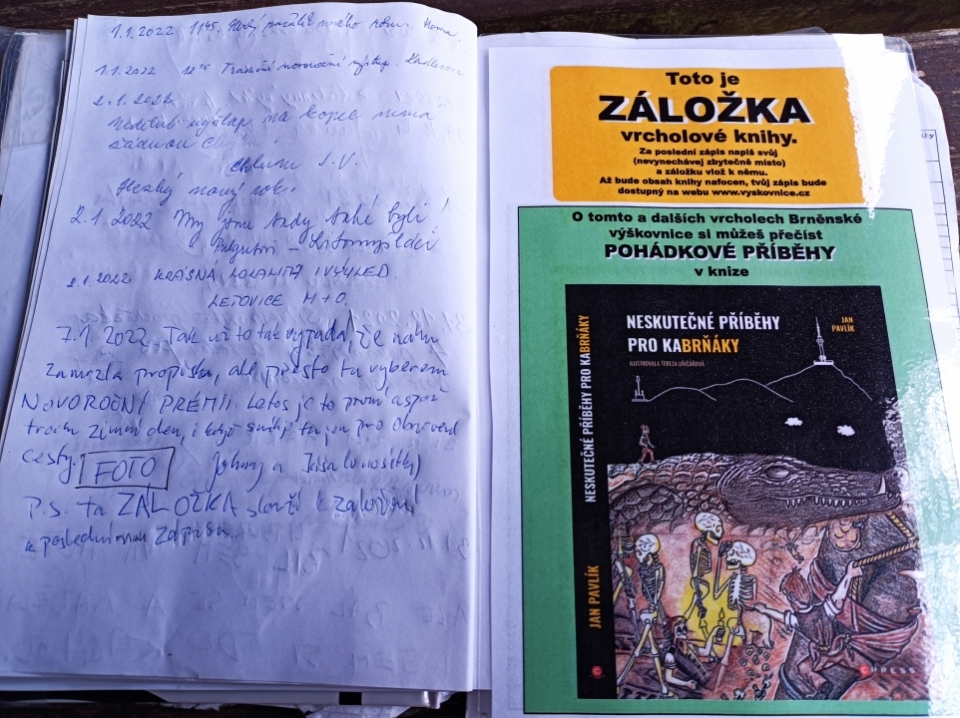 1.1.2022 1145. Hezký začátek nového roku Homa.
1.1.2022 12 15 Tradiční novoroční výstup.
2.1.2022
na kopce nemá
žádnou chybu.
chlum J.V.
Hezký nový rok.
2.1.2022 My jsme tady také byli!
– Litomyšldei
2.1.2022 KRÁSNÁ LOKALITA I VÝHLED.
LETOVICE M+O.
7.1.2022. Tak už to tak vypadá, že nám
zamrzla propiska, ale přesto tu vyberem
NOVOROČNÍ PRÉMII. Letos je to první aspoň
trochu zimní den, i když sníh tu jen pro
cesty. FOTO Johny a
P.S. ta ZÁLOŽKA slouží k založení
k posledním zápisu
Toto je
ZÁLOŽKA
vrcholové knihy.
Za poslední zápis napiš svůj
(nevynechávej zbytečně místo)
a záložku vlož k němu.
Až bude obsah knihy nafocen, tvůj zápis bude
dostupný na webu www.vyskovnice.cz
O tomto a dalších vrcholech Brněnské
výškovnice si můžeš přečíst
POHÁDKOVÉ PŘÍBĚHY
v knize
NESKUTEČNÉ PŘÍBĚHY PRO KABRŇÁKY
JAN PAVLÍK
NESKUTEČNÉ PŘÍBĚHY
PRO KABRŇÁKY
JAN
PAVLÍK
ILUSTROVALA TEREZA
CPRESS